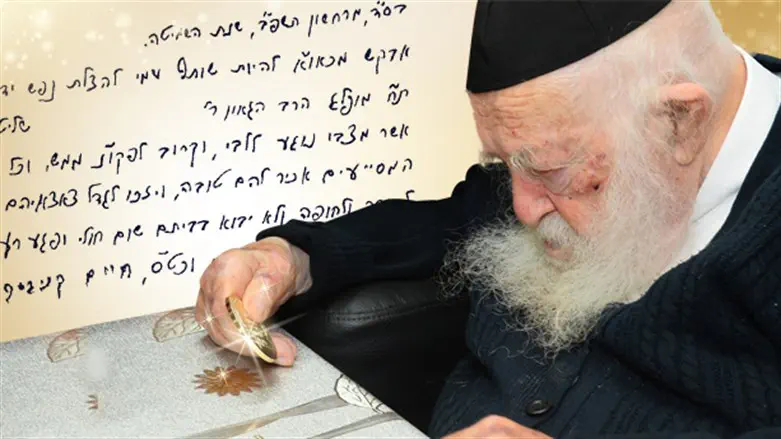 בס"ד, מרחשון תשפ"ב, שנת השמיטה.
אבקש מכאו"א להיות שותף עמי להצלת נפש יד
ת"ח מופלג הרב הגאון ר' שליט
אשר מצבו נוגע ללבי, וקרוב לפקו"נ ממש, וכל
המסייעים אכיר להם טובה, ויזכו לגדל צאצאיהם
ולחופה ולא יבוא בביתם שום חולי ופגע רע
וכט"ס, חיים קניבסקי